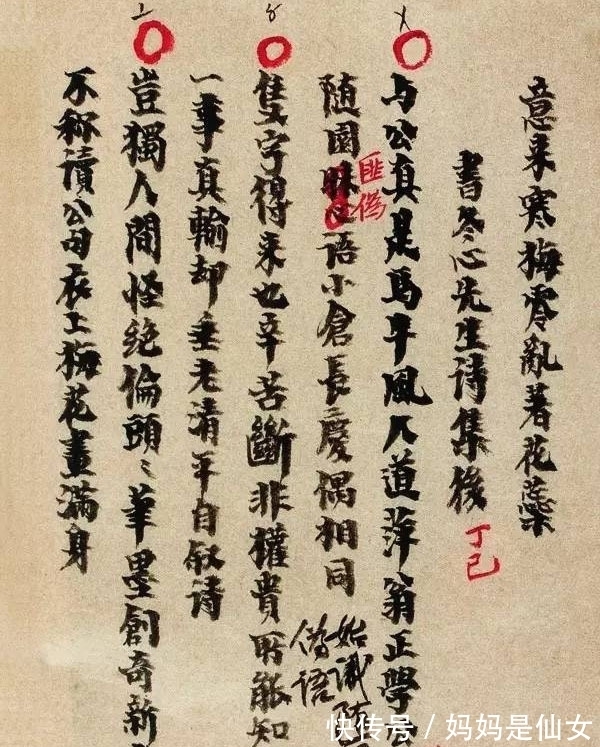 意来寒梅零亂著花蘂
書冬心先生诗集後 丁巳
与公真是馬牛風人道萍翁正學
随園语小倉長慶偶相同
匪偽
始識
偽语
隻字得来也辛苦斷非權貴所能知
一事真輸却垂老清平自叙诗
豈獨人間怪絶倫頭〻筆墨創奇新
不称讀公句衣上梅花畫滿身
快传号/妈妈是仙女